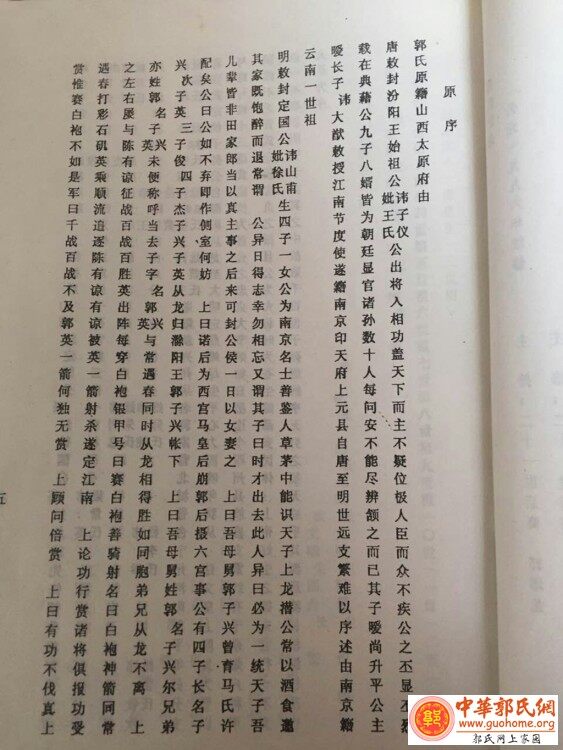 原序
郭氏原籍山西太原府由
唐敕封汾阳王始祖公讳子仪妣王氏公出将入相功盖天下而主不疑位极人臣而众不疾公之丕显丕烈
载在典藉公九子八婿皆为朝廷显官诸孙数十人每问安不能尽辨颔之而已其子暧尚升平公主
暧长子讳大猷敕授江南节度使遂籍南京印天府上元县自唐至明世远支繁难以序述由南京籍
云南一世祖
明敕封定国公讳山甫妣徐氏生四子一女公为南京名士善鉴人草茅中能识天子上龙潜公常以酒食邀
其家既饱醉而退常谓 公异日得志幸勿相忘又谓其子曰时才出去此人异日必为一统天子吾
儿辈皆非田家郎当以真主事之后来可封公侯一日以女妻之 上曰吾母舅郭子兴曾育马氏许
配矣公曰公如不弃即作侧室何妨 上曰诺后为西宫马皇后崩郭后摄六宫事公有四子长名子
兴次子英三子俊四子杰子兴子英从龙归滁阳王郭子兴帐下 上曰吾母舅姓郭名子兴尔兄弟
亦姓郭名子兴英未便称呼当去子字名郭兴英与常遇春同时从龙相得胜如同胞弟兄从龙不离 上
之左右屡与陈有谅征战百战百胜英出阵每穿白袍银甲号曰赛白袍善骑射名曰白袍神箭同常
遇春打彩石矶英乘顺流追逐陈有谅被英一箭射杀遂定江南 上论功行赏诸将俱报功受
赏惟赛白袍不如是军曰千战百战不及郭英一箭何独无赏 上顾问倍赏 上曰有功不伐真上
五
郭
中華郭氏網
www.guohome.org
郭氏网上家园